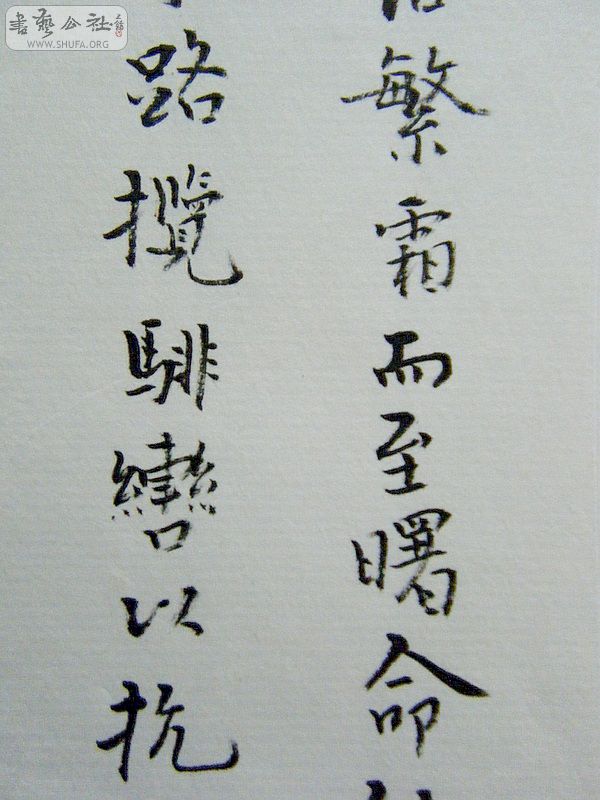 書藝公社
WWW.SHUFA.ORG
繁霜而至曙命
路攬騑轡以抗